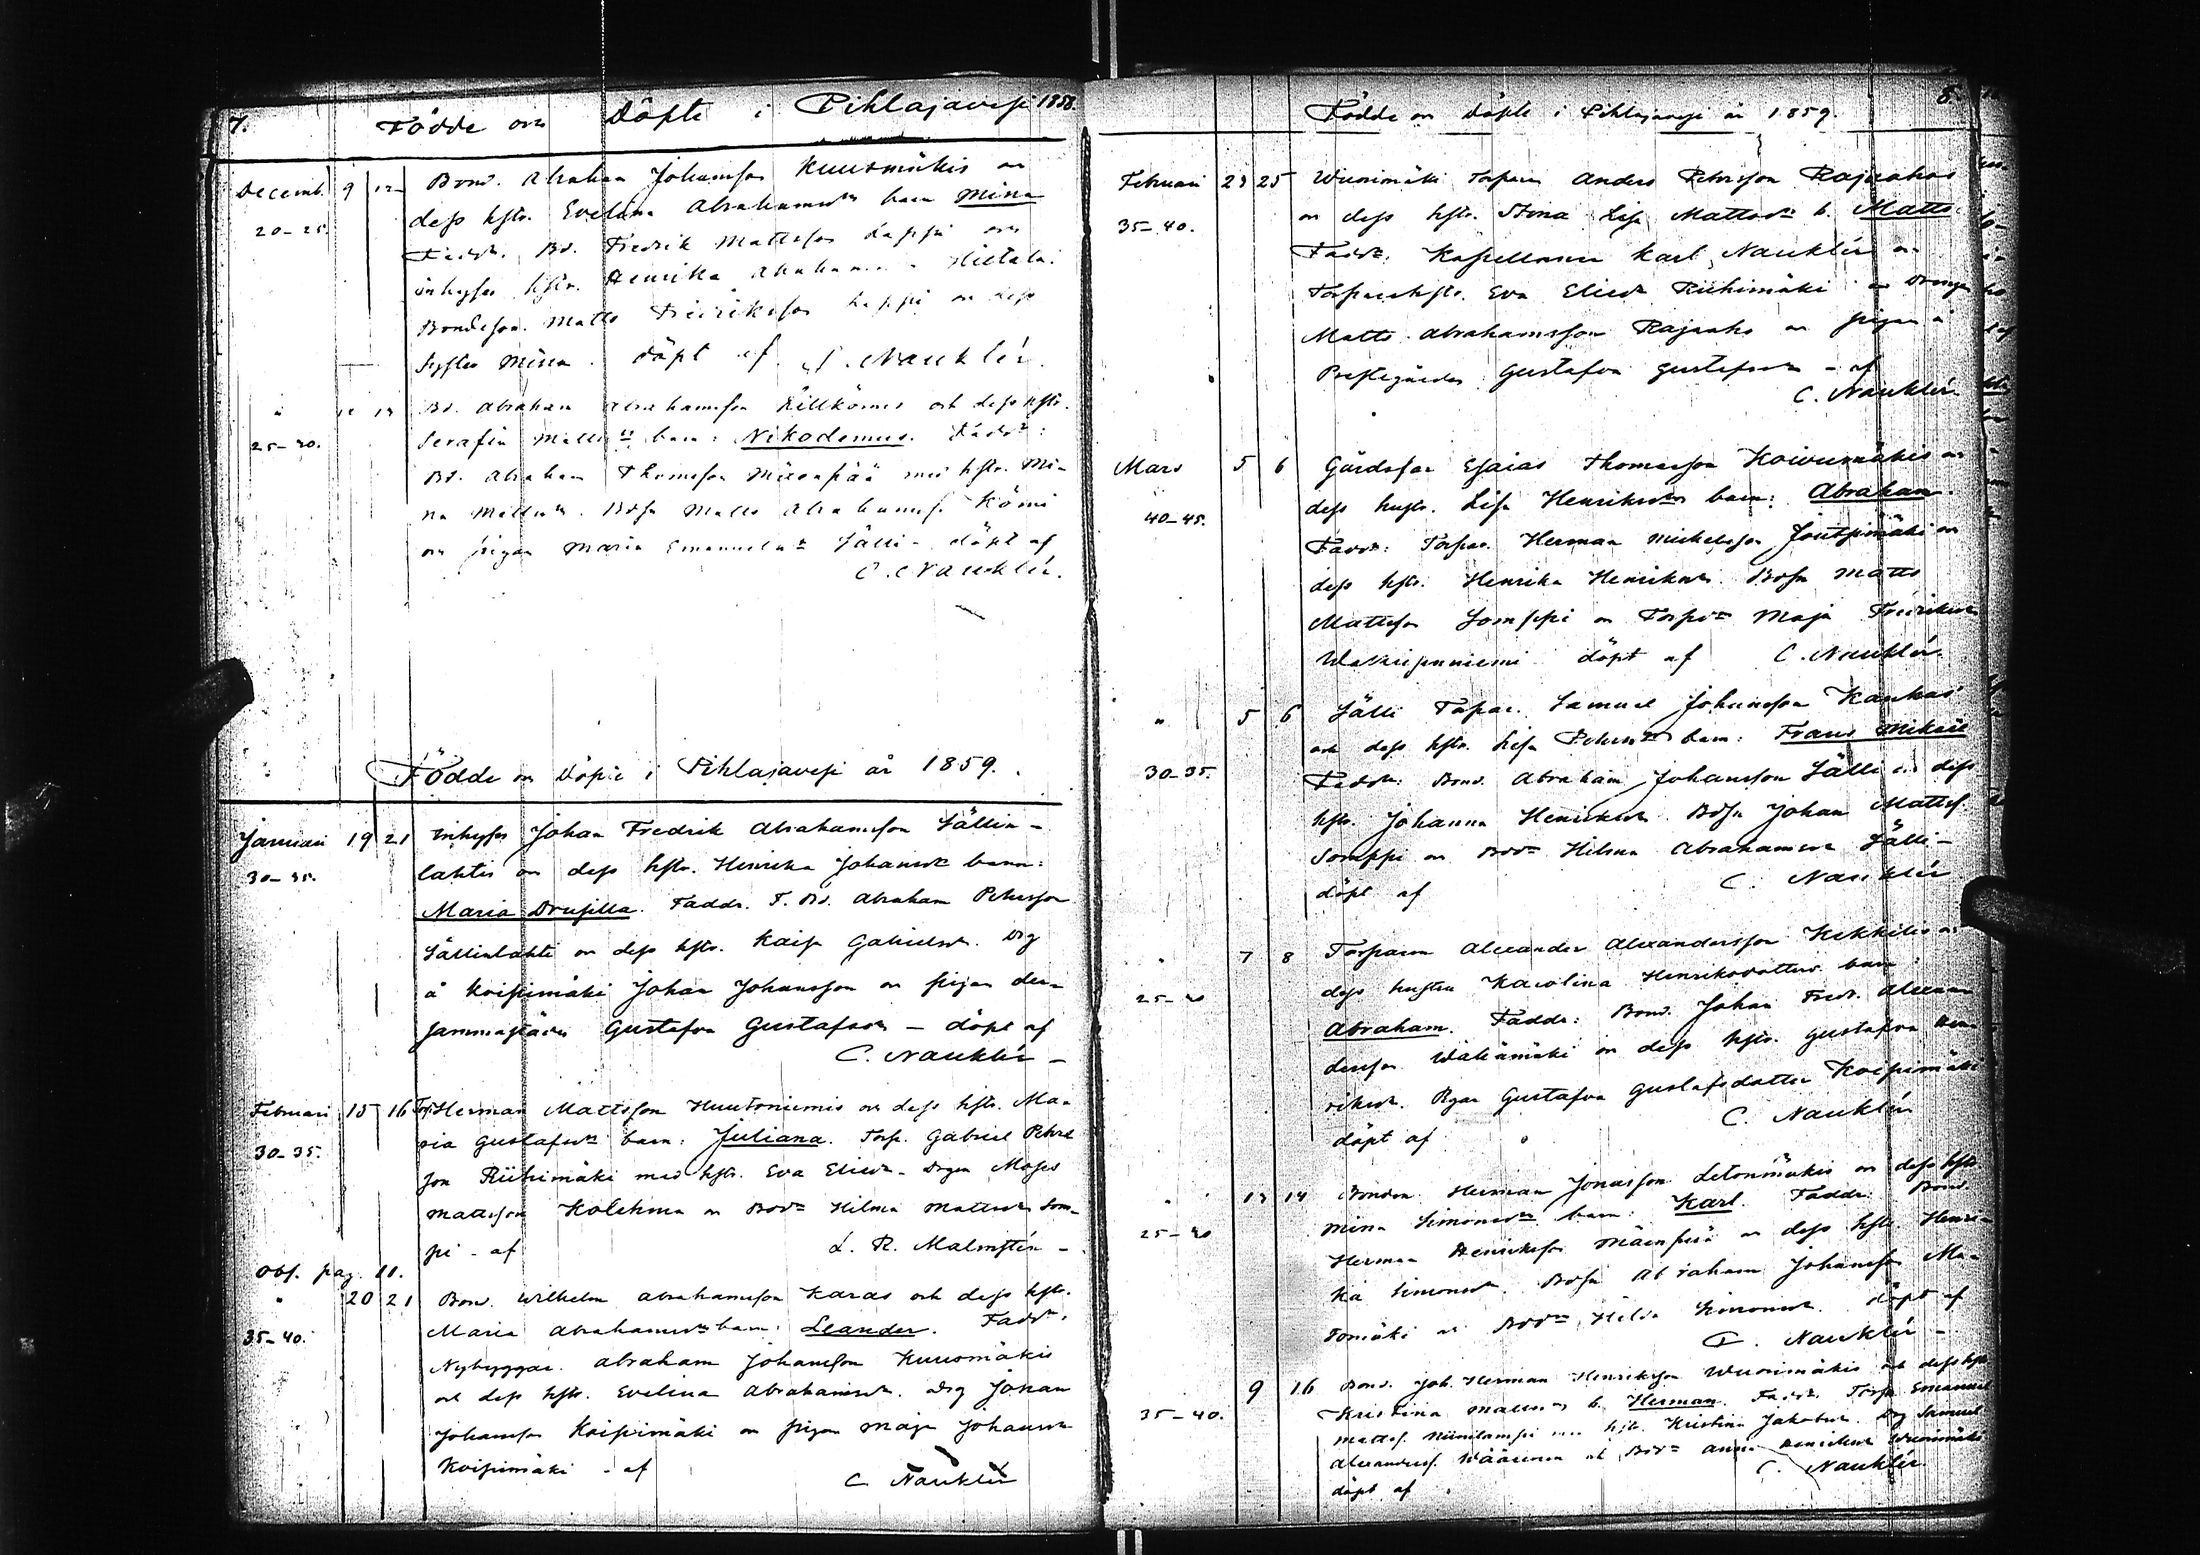 7.
Födde och Döpte i Pihlajavesi 1858.
Decemb. 9 12 Bond. Abraham Johansson Kuusmäkis och
20-25. dess hstr. Evelina Abrahamsdr barn Mina
Faddr. Bd. Fredrik Mattsson Lappi och
inhyses hstr. Henrika Hietala.
Bondeson. Matts Fredriksson Lappi och dess
Syster Mina. döpt af Nauklér.
" 13 Bd. Abraham Abrahamsson Killkömis och dess hstr.
25-30. Serafia Mattsdr barn: Nikodemus. Faddr:
Bd. Abraham Thomsson Mäenpää med hstr. Mi-
na Mattsdr. Bdsn Matts Abrahamss. Kömi
och pigan Maria Emanuelsdr Sälli - döpt af
C. Nauklér.
Födde och Döpte i Pihlajavesi år 1859.
Januari 19 21 Inhyses Johan Fredrik Abrahamsson Sällin-
30-35. lahtis och dess hstr. Henrika Johansdr barn:
Maria Drusilla. Faddr. F. Bd. Abraham Petersson
Sällinlahti och dess hstr. Kaisa Gabrielsdr. Drg
å Koipimäki Johan Johansson och pigan der-
sammastädes Gustafva Gustafsdr - döpt af
C. Nauklér -
Februari 15 16 Torp. Herman Mattsson Huutoniemis och dess hstr. Ma-
30-35. ria Gustafsdr barn: Juliana. Torp. Gabriel Peters
son Riihimäki med hstr. Eva Eliedr - Drgen Moses
Mattsson Kolehma och Bdr Hilma Mattsdr Som-
pi - af L. R. Malmstén -
Obs. pag. 11.
" 20 21 Bond. Wilhelm Abrahamsson Karas och dess hstr.
35-40. Maria Abrahamsdr barn: Leander. Faddr.
Nybyggar. Abraham Johansson Kuusmäkis
och dess hstr. Evelina Abrahamsdr. Drg Johan
Johansson Koipimäki och pigan Maja Johansdr
Koipimäki - af C Nauklér
8.
Födde och Döpte i Pihlajavesi år 1859.
Februari 23 25 Wuorimäki Torparen Anders Petersson Rajaahos
35-40. och dess hstr. Stina Lisa Mattsdr b. Matts.
Faddr. Kapellanen Karl Nauklér och
Torparehstr. Eva Eliedr Riihimäki och Drengen
Matts Abrahamsson Rajaaho och pigan i
Prestgården Gustafva Gustafsdr - af
C. Nauklér
Mars 5 6 Gårdsfar Esaias Thomasson Koivumäkis och
40-45. dess hustr. Lisa Henriksdr barn: Abraham.
Faddr: Torpar. Herman Mickelsson Joutsimäki och
dess hstr. Henrika Henriksdr. Bdsn Matts
Mattsson Somppi och Torpdr Maja Fredriksdr
döpt af C. Nauklér.
" 5 6 Sälli Torpar. Samuel Johansson Kankas
30-35. och dess hstr. Lisa Petersdr barn: Frans Mikael
Faddr: Bond. Abraham Johansson Sälli och dess
hstr. Johanna Henriksdr. Bdsn Johan Mattss.
Somppi och Bdr Hilma Abrahamsdr Sälli -
döpt af C. Nauklér
" 7 8 Torparen Alexander Alexandersson Kekkilis och
dess hustru Karolina Henriksdotter barn:
Abraham. Faddr: Bond. Johan Fredr. Alexan
dersson Wähämäki och dess hstr. Gustafva Hen
riksdr. Pigan Gustafva Gustafsdotter Koipimäki
döpt af C. Nauklér
" 13 14 Bonden Herman Jonasson Letonmäkis och dess hstr
25-30 Mina Simonsdr barn: Karl. Faddr: Bond.
Herman Henriksson Mäenpää och dess hstr. Henri-
ka Simonsdr. Bdsn Abraham Johansson Ma-
tomäki och Bdr Hilda Simonsdr. döpt af
C. Nauklér -
9 16 Bond. Joh. Herman Henriksson Wuorimäkis och dess hstr
35-40. Kristina Mattsdr b. Herman. Faddr. Torp. Emanuel
Mattss. Niinilampi hstr. Kristina Jakobsdr. Drg Samuel
Alexanderss. Wäärinen och Bdr Anna Henriksdr Wuorimäki
döpt af C. Nauklér